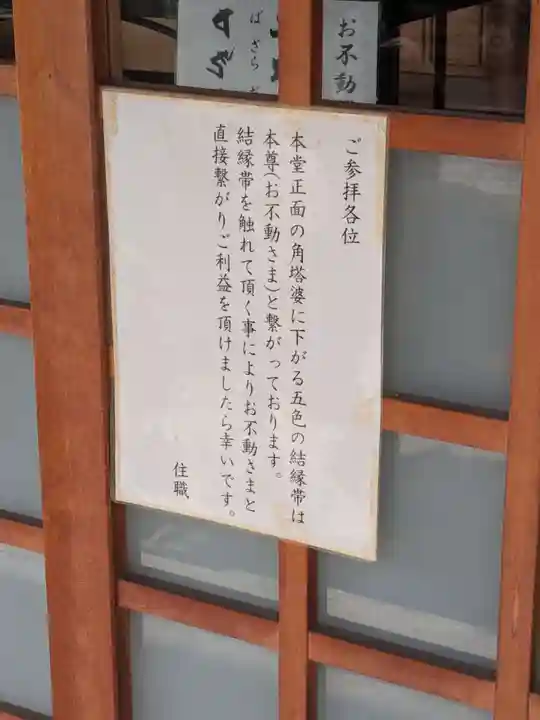 お不動
ばざらだ
ご参拝各位
本堂正面の角塔婆に下がる五色の結縁帯は
本尊(お不動さま)と繋がっております。
結縁帯を触れて頂く事によりお不動さまと
直接繋がりご利益を頂けましたら幸いです。
住職